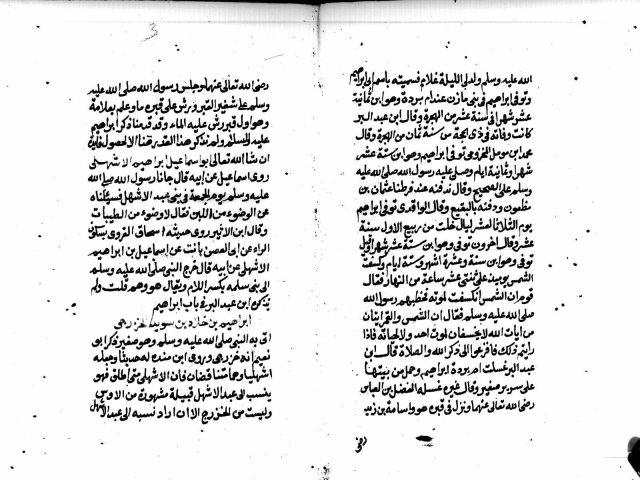 الله عليه وسلم ولد لي الليلة غلام فسميته باسم ابي ابراهيم
وتوفي ابراهيم في بني مازن عند ام بردة وهو ابن ثمانية
عشر شهرا في سنة عشر من الهجرة وقال ابن عبد البر
كانت وفاته في ذي الحجة من سنة ثمان من الهجرة وقال
محمد ابن مومل المخزومي توفي ابراهيم وهو ابن ستة عشر
شهرا وثمانية ايام وصلى عليه رسول الله صلى الله عليه
وسلم على الصحيح وقال ندفنه عند فرطنا عثمان بن
مظعون ودفنه بالبقيع وقال الواقدي توفي ابراهيم
يوم الثلاثا لعشر ليال خلت من ربيع الاول سنة
عشر وقال اخرون توفي وهو ابن ستة عشر شهرا وقيل
توفي وهو ابن سنة وعشرة اشهر وستة ايام وكسفت
الشمس يومئذ على ثنتي عشر ساعة من النهار فقال
قوم ان الشمس انكسفت لموته فخطبهم رسول الله
صلى الله عليه وسلم فقال ان الشمس والقمر ايتان
من ايات الله لا يخسفان لموت احد ولا لحياته فاذا
رايتم ذلك فافزعوا الى ذكر الله والصلاة قال ابن
عبد البر غسلت ام بردة ابراهيم وحمل من بيتها
على سرير صغير وقال غيره غسله الفضل بن العباس
رضي الله تعالى عنهما ونزل في قبره هو واسامة بن زيد
رضي
3
رضي الله تعالى عنهما وجلس رسول الله صلى الله عليه
وسلم على شفير القبر ورش على قبره ماء وعلم بعلامة
وهو اول قبر رش عليه الماء وقد قدمنا ذكر ابراهيم
عليه السلم ولم نذكر هذا القدر هنا الا لحصول فايدة
ان شا الله تعالى ابو اسماعيل ابراهيم الاشهلي
روى اسماعيل عن ابيه قال جانا رسول الله صلى الله
عليه وسلم يوم الجمعة في بني عبد الاشهل فسئلناه
عن الوضوء من اللبن فقال لا وضوء من الطيبات
وقال ابن الاثير روى حديثه اسحاق الفروي بسكون
الراء عن ابي الغصن ثابت عن اسماعيل بن ابراهيم
الاشهلي عن ابيه قال خرج النبي صلى الله عليه وسلم
الى بني سلمه بكسر اللام ويقال هو وهم قلت ولم
يذكره ابن عبد البر في باب ابراهيم
ابراهيم بن خلاد بن سويد الخزرجي
اتي به النبي صلى الله عليه وسلم وهو صغير ذكر ابو
نعيم انه خزرجي وروى ابن منده له حديثا وجعله
اشهليا وهما متناقضان فان الاشهلي متى اطلق فهو
ينسب الى عبد الاشهل قبيلة مشهورة من الاوس
وليست من الخزرج الا ان اراد نسبه الى عبد الاشهل